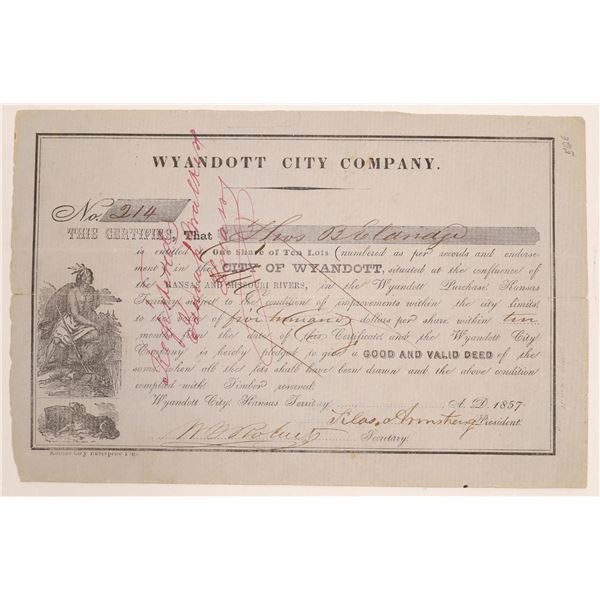 WYANDOTT CITY COMPANY.
No. 214
THIS CERTIFIES, That Thos B Eldridge
is entitled to One Share of Ten Lots (numbered as per records and endorse-
ment) in the CITY OF WYANDOTT, situated at the confluence of
the KANSAS AND MISSOURI RIVERS, in the Wyandott Purchase, Kansas
Territory, subject to the condition of improvements within the city limits,
to the value of five thousand dollars per share, within ten
months from the date of this Certificate, and the Wyandott City
Company is hereby pledged to give a GOOD AND VALID DEED of the
same when all the lots shall have been drawn and the above condition
complied with. Timber reserved.
Wyandott City, Kansas Territory, A. D. 1857.
Silas Armstrong President.
Secretary.
Kansas City Enterprise Print.